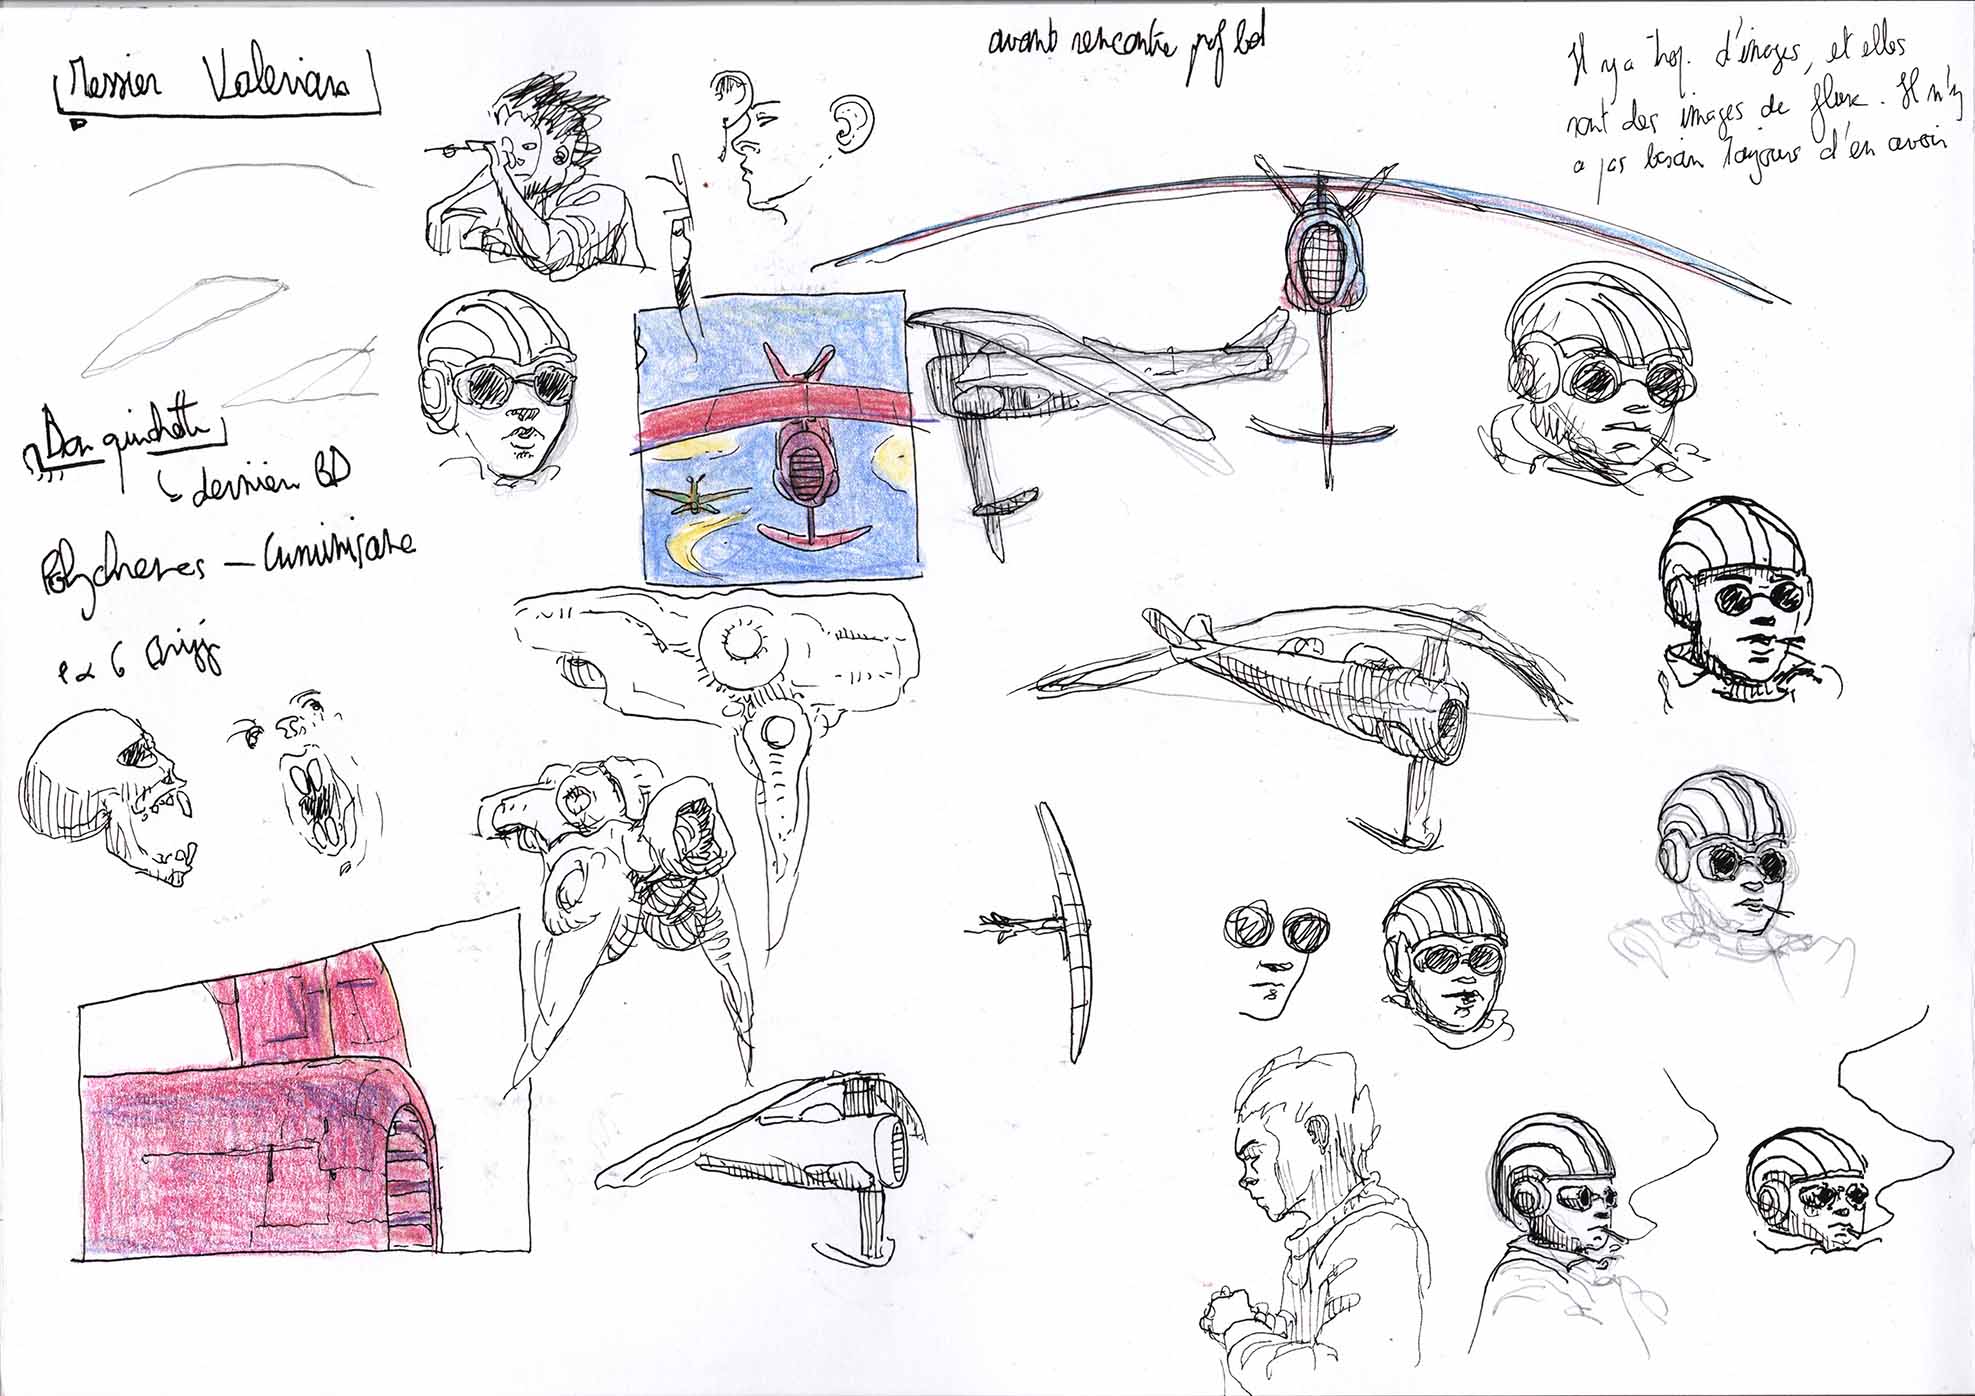 Messier Valerian
avant rencontre prof bd
Il y a trop d'images, et elles
sont des images de flux. Il n'y
a pas besoin toujours d'en avoir
Don quichotte
↳ dernière BD